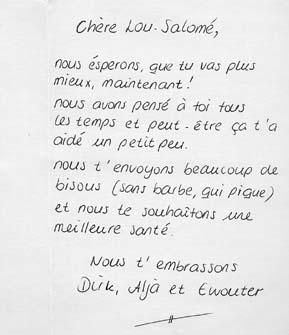 Chère Lou-Salomé,
nous ésperons, que tu vas plus
mieux, maintenant!
nous avons pensé à toi tous
les temps et peut-être ça t'a
aidé un petit peu.
nous t'envoyons beaucoup de
bisous (sans barbe, qui pique)
et nous te souhaîtons une
meilleure santé.
Nous t'embrassons
Dirk, Aljà et Ewouter